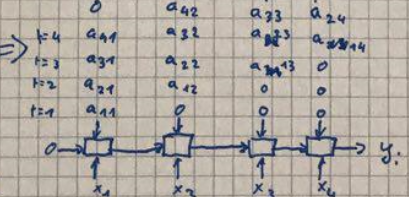 0 a42 a33 a24
t=4 a41 a32 a23 a14
t=3 a31 a22 a13 0
t=2 a21 a12 0 0
t=1 a11 0 0 0
0 yi
x1 x2 x3 x4